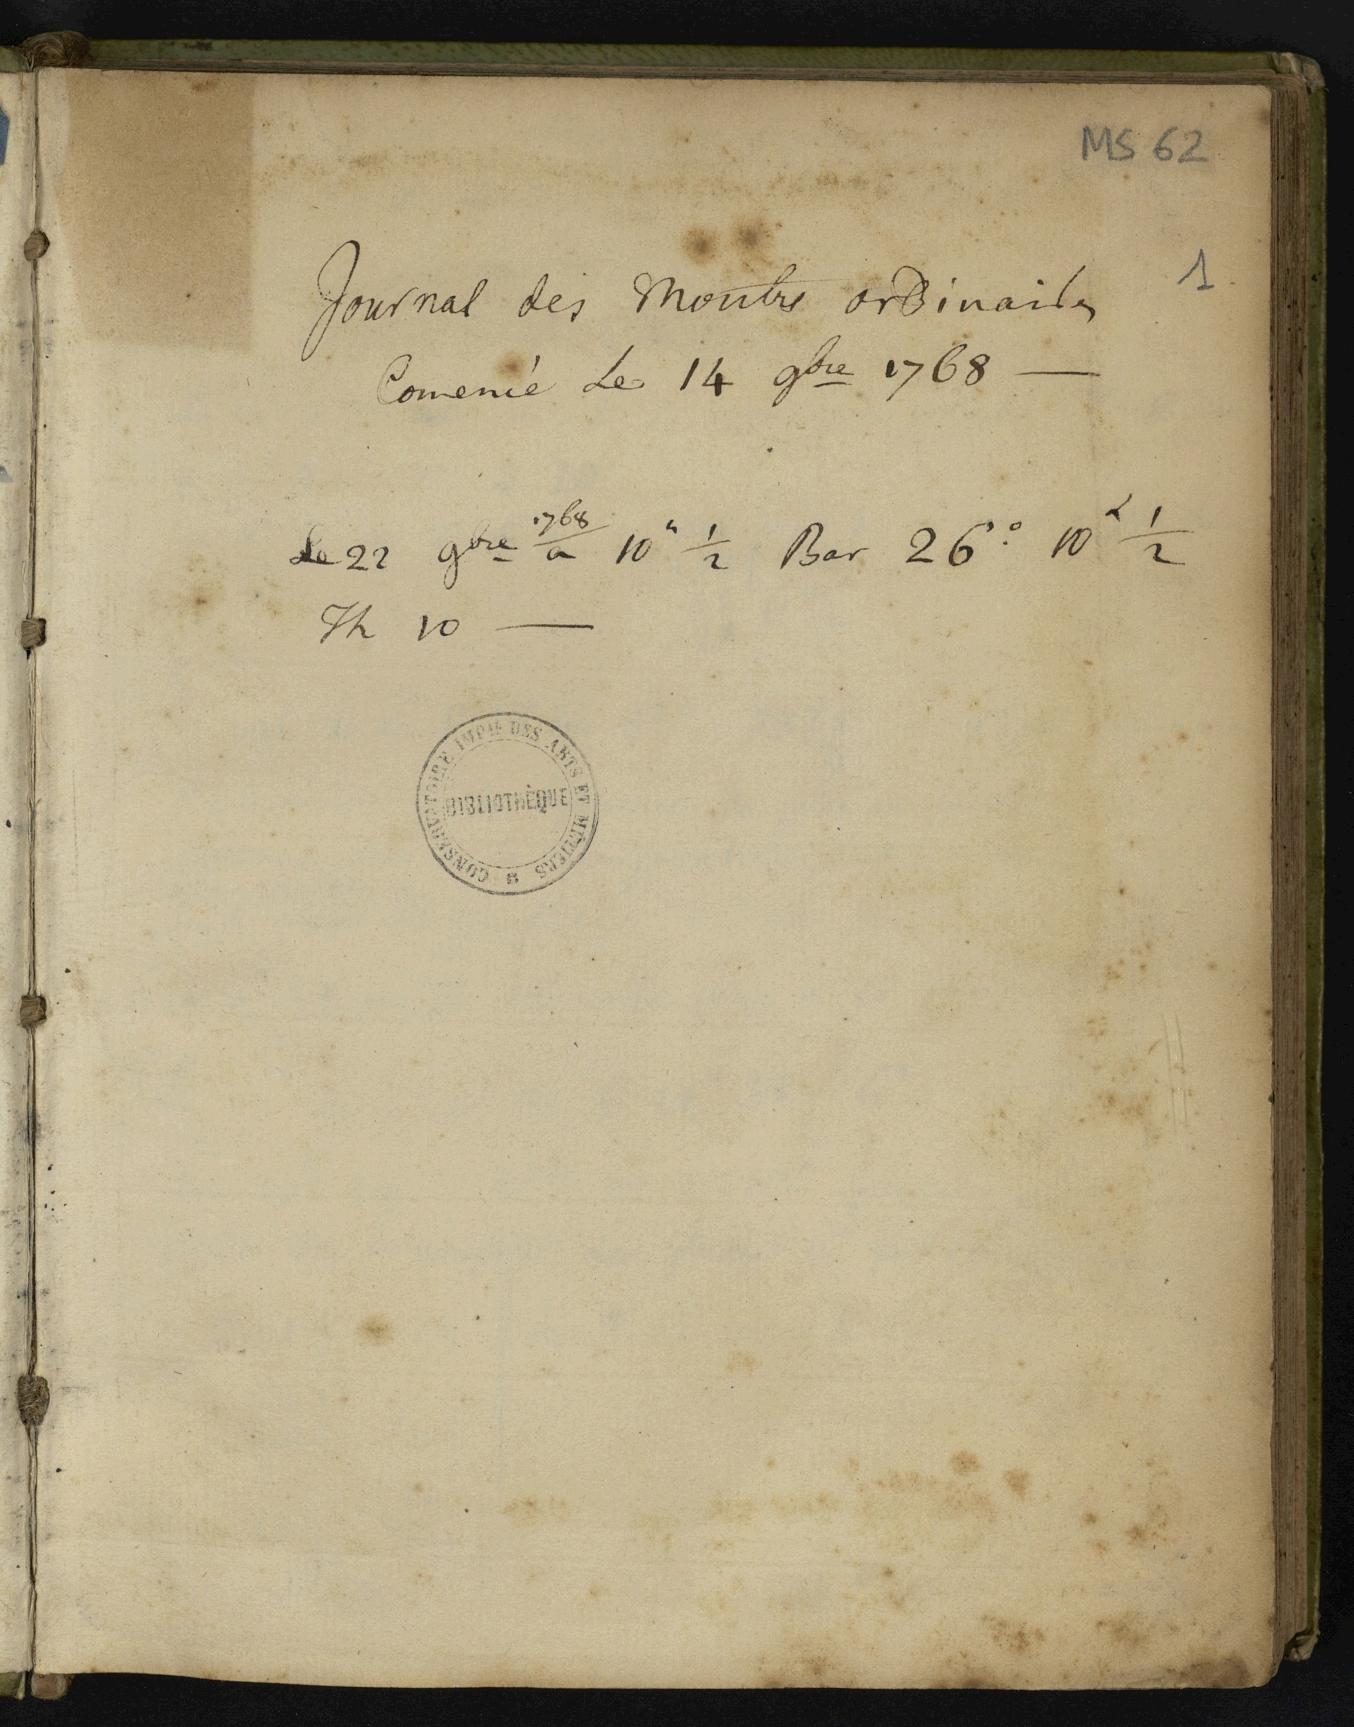 MS 62
1
Journal des Montres ordinaires
Comencé Le 14 9bre 1768 —
1768
Le 22 9bre a 10 h 1/2 Bar 26° 10 L 1/2
Th 10 —
CONSERVATOIRE IMPAL DES ARTS ET MÉTIERS
BIBLIOTHÈQUE